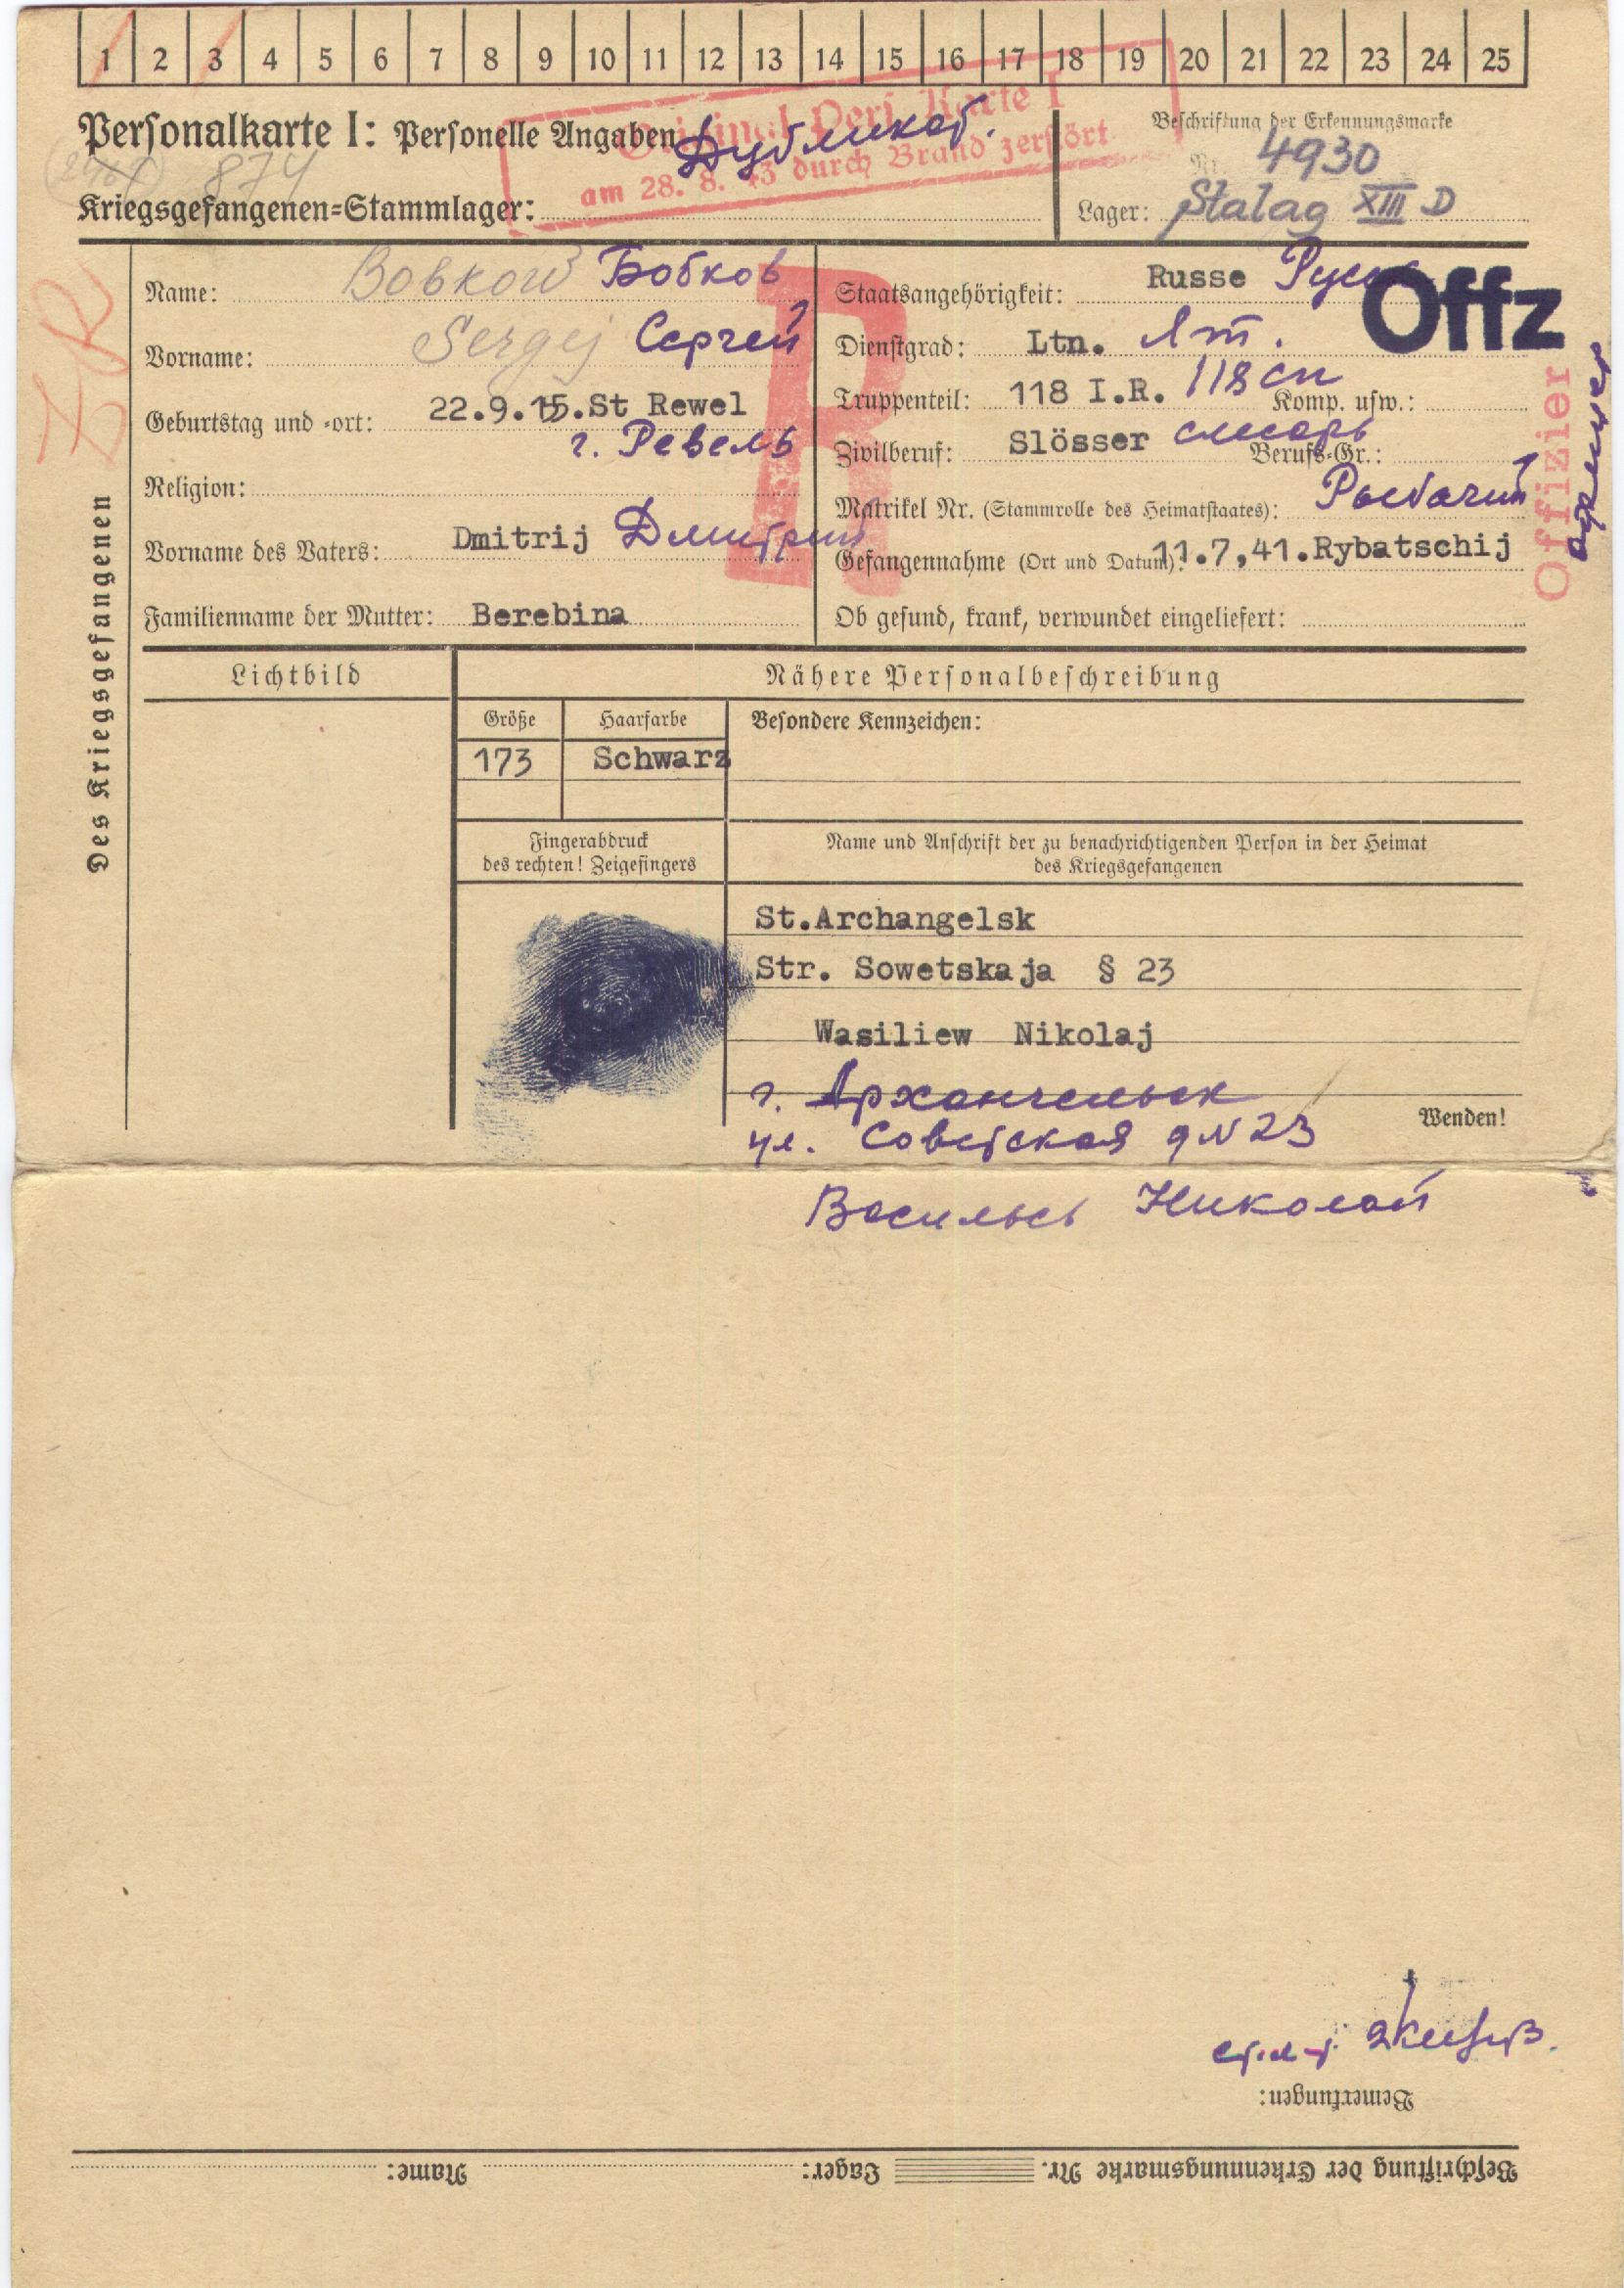 1 2 3 4 5 6 7 8 9 10 11 12 13 14 15 16 17 18 19 20 21 22 23 24 25
Personalkarte I: Personelle Angaben
Original Pers. Karte I
am 28. 8. 43 durch Brand zerstört
Дубликат.
Beschriftung der Erkennungsmarke
Nr. 4930
874
Kriegsgefangenen=Stammlager:
Lager: Stalag XIII D
Des Kriegsgefangenen
R
Name: Bobkow Бобков
Vorname: Sergej Сергей
Geburtstag und -ort: 22.9.15.St Rewel
г. Ревель
Religion:
Vorname des Vaters: Dmitrij Дмитрий
Familienname der Mutter: Berebina
Staatsangehörigkeit: Russe
Offz
Dienstgrad: Ltn. Лт.
Truppenteil: 118 I.R. 118 сп Komp. usw.:
Zivilberuf: Slösser слесарь Berufs-Gr.:
Matrikel Nr. (Stammrolle des Heimatstaates):
Gefangennahme (Ort und Datum): 11.7,41.Rybatschij
Ob gesund, krank, verwundet eingeliefert:
Offizier
офицер
Lichtbild
Nähere Personalbeschreibung
Größe Haarfarbe Besondere Kennzeichen:
173 Schwarz
Fingerabdruck
des rechten! Zeigefingers
Name und Anschrift der zu benachrichtigenden Person in der Heimat
des Kriegsgefangenen
St.Archangelsk
Str. Sowetskaja § 23
Wasiliew Nikolaj
г. Архангельск
ул. Советская д N 23
Wenden!
Васильев Николай
Bemerkungen:
Beschriftung der Erkennungsmarke Nr. Lager: Name: